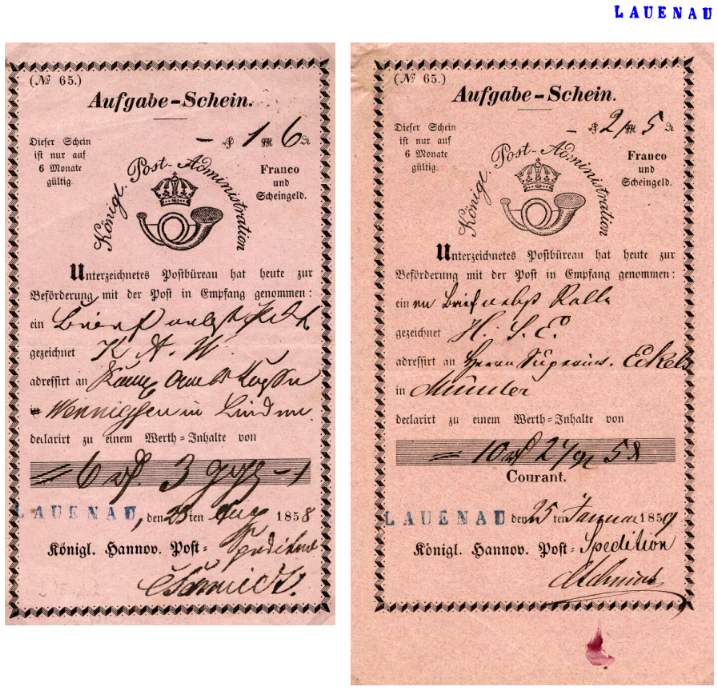 LAUENAU
(№ 65.)
Aufgabe-Schein.
Dieser Schein
ist nur auf
6 Monate
gültig.
1 6
Franco
und
Scheingeld.
Königl. Post-Administration
Unterzeichnetes Postbüreau hat heute zur
Beförderung mit der Post in Empfang genommen:
ein Brief nebst
gezeichnet K. A. W.
adressirt an
in Wennigsen in Linden
declarirt zu einem Werth-Inhalte von
6 3
LAUENAU, den 25ten Aug 1858
Königl. Hannov. Post-Spedition
(№ 65.)
Aufgabe-Schein.
Dieser Schein
ist nur auf
6 Monate
gültig.
2 5
Franco
und
Scheingeld.
Königl. Post-Administration
Unterzeichnetes Postbüreau hat heute zur
Beförderung mit der Post in Empfang genommen:
ein Brief nebst Rolle
gezeichnet H. S. E.
adressirt an Herrn Superint. Eckels
in Münder
declarirt zu einem Werth-Inhalte von
10 24 5
Courant.
LAUENAU den 25ten Januar 1859
Königl. Hannov. Post-Spedition